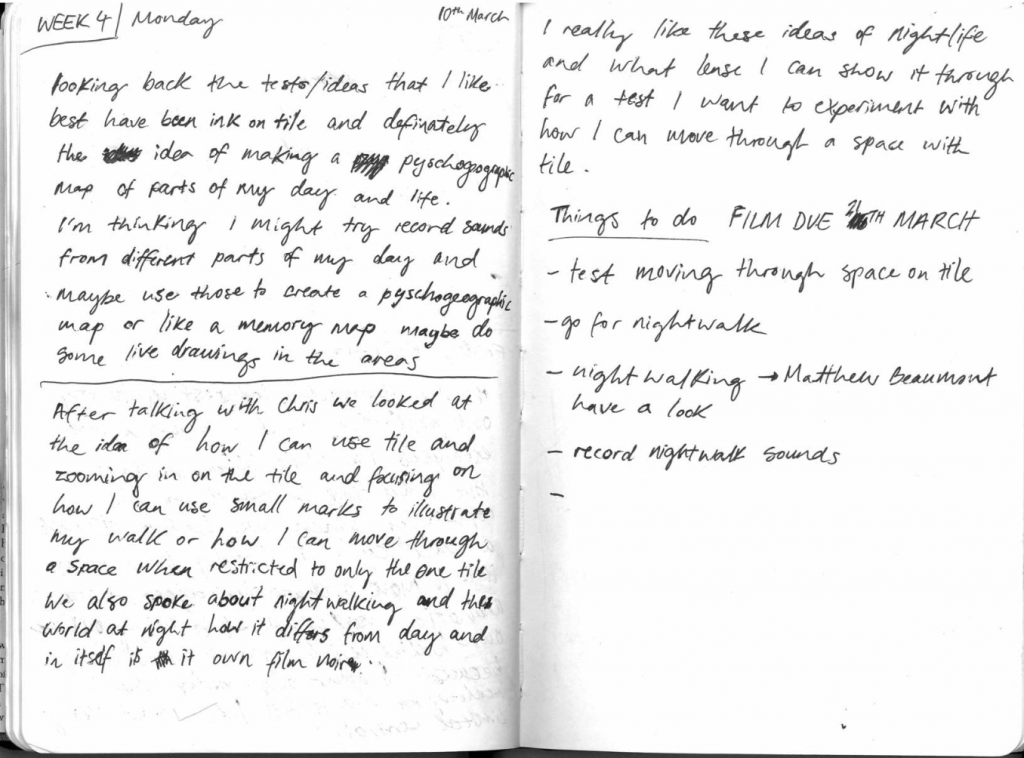 WEEK 4 | Monday
10th March
looking back the tests/ideas that I like
best have been ink on tile and definately
the idea of making a pyschogeographic
map of parts of my day and life.
I'm thinking I might try record sounds
from different parts of my day and
maybe use those to create a pyschogeographic
map or like a memory map maybe do
some live drawings in the areas
After talking with Chris we looked at
the idea of how I can use tile and
zooming in on the tile and focusing on
how I can use small marks to illustrate
my walk or how I can move through
a space when restricted to only the one tile
We also spoke about nightwalking and the
world at night how it differs from day and
in itself is it own film noir..
I really like these ideas of nightlife
and what lense I can show it through
for a test I want to experiment with
how I can move through a space with
tile.
Things to do FILM DUE 21TH MARCH
- test moving through space on tile
- go for nightwalk
- nightwalking → Matthew Beaumont
have a look
- record nightwalk sounds
-